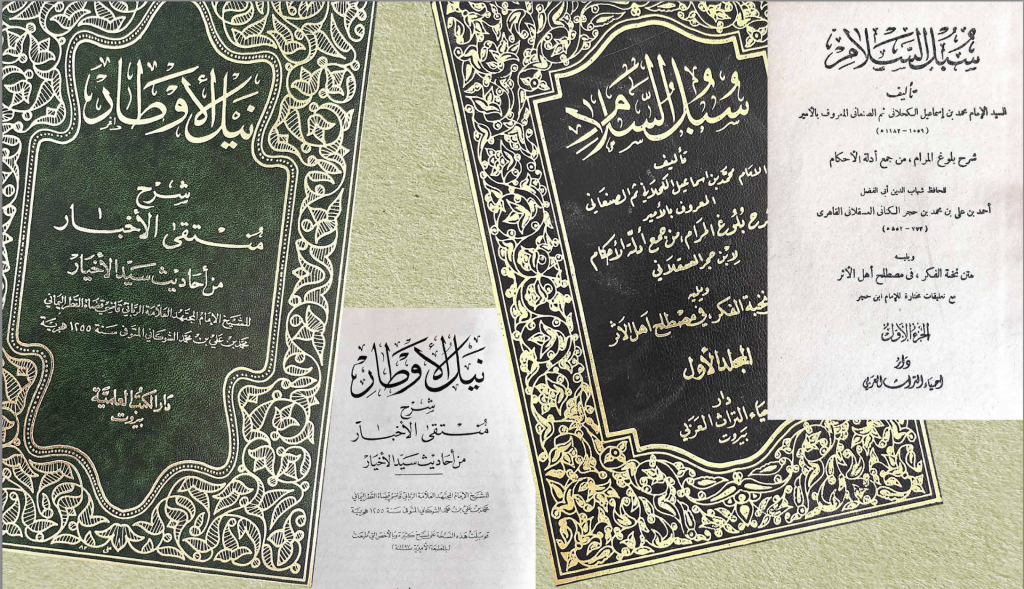 نيل الأوطار
شرح
منتقى الأخبار
من أحاديث سيد الأخيار
للشيخ الإمام المجتهد العلامة الرباني قاضي قضاة القطر اليماني
محمد بن علي بن محمد الشوكاني المتوفى سنة ١٢٥٥ هجرية
دار الكتب العلمية
بيروت
نيل الأوطار
شرح
منتقى الأخبار
من أحاديث سيد الأخيار
للشيخ الإمام المجتهد العلامة الرباني قاضي قضاة القطر اليماني
محمد بن علي بن محمد الشوكاني المتوفى سنة ١٢٥٥ هجرية
قوبلت هذه النسخة على نسخ كثيرة وبالأخص التي طبعت
بالمطبعة الأميرية
سبل السلام
تأليف
الإمام محمد بن اسماعيل الكحلاني ثم الصنعاني
المعروف بالأمير
شرح بلوغ المرام، من جمع أدلة الأحكام
لابن حجر العسقلاني
ويليه
نخبة الفكر في مصطلح أهل الأثر
المجلد الأول
دار
إحياء التراث العربي
بيروت
سبل السلام
تأليف
السيد الإمام محمد بن إسماعيل الكحلاني ثم الصنعاني المعروف بالأمير
(١٠٥٩ - ١١٨٢ ه)
شرح بلوغ المرام، من جمع أدلة الأحكام
للحافظ شهاب الدين أبي الفضل
أحمد بن علي بن محمد بن حجر الكناني العسقلاني القاهري
(٧٧٣ - ٨٥٢ ه)
ويليه
متن نخبة الفكر، في مصطلح أهل الأثر
مع تعليقات مختارة للإمام ابن حجر
الجزء الأول
دار
إحياء التراث العربي